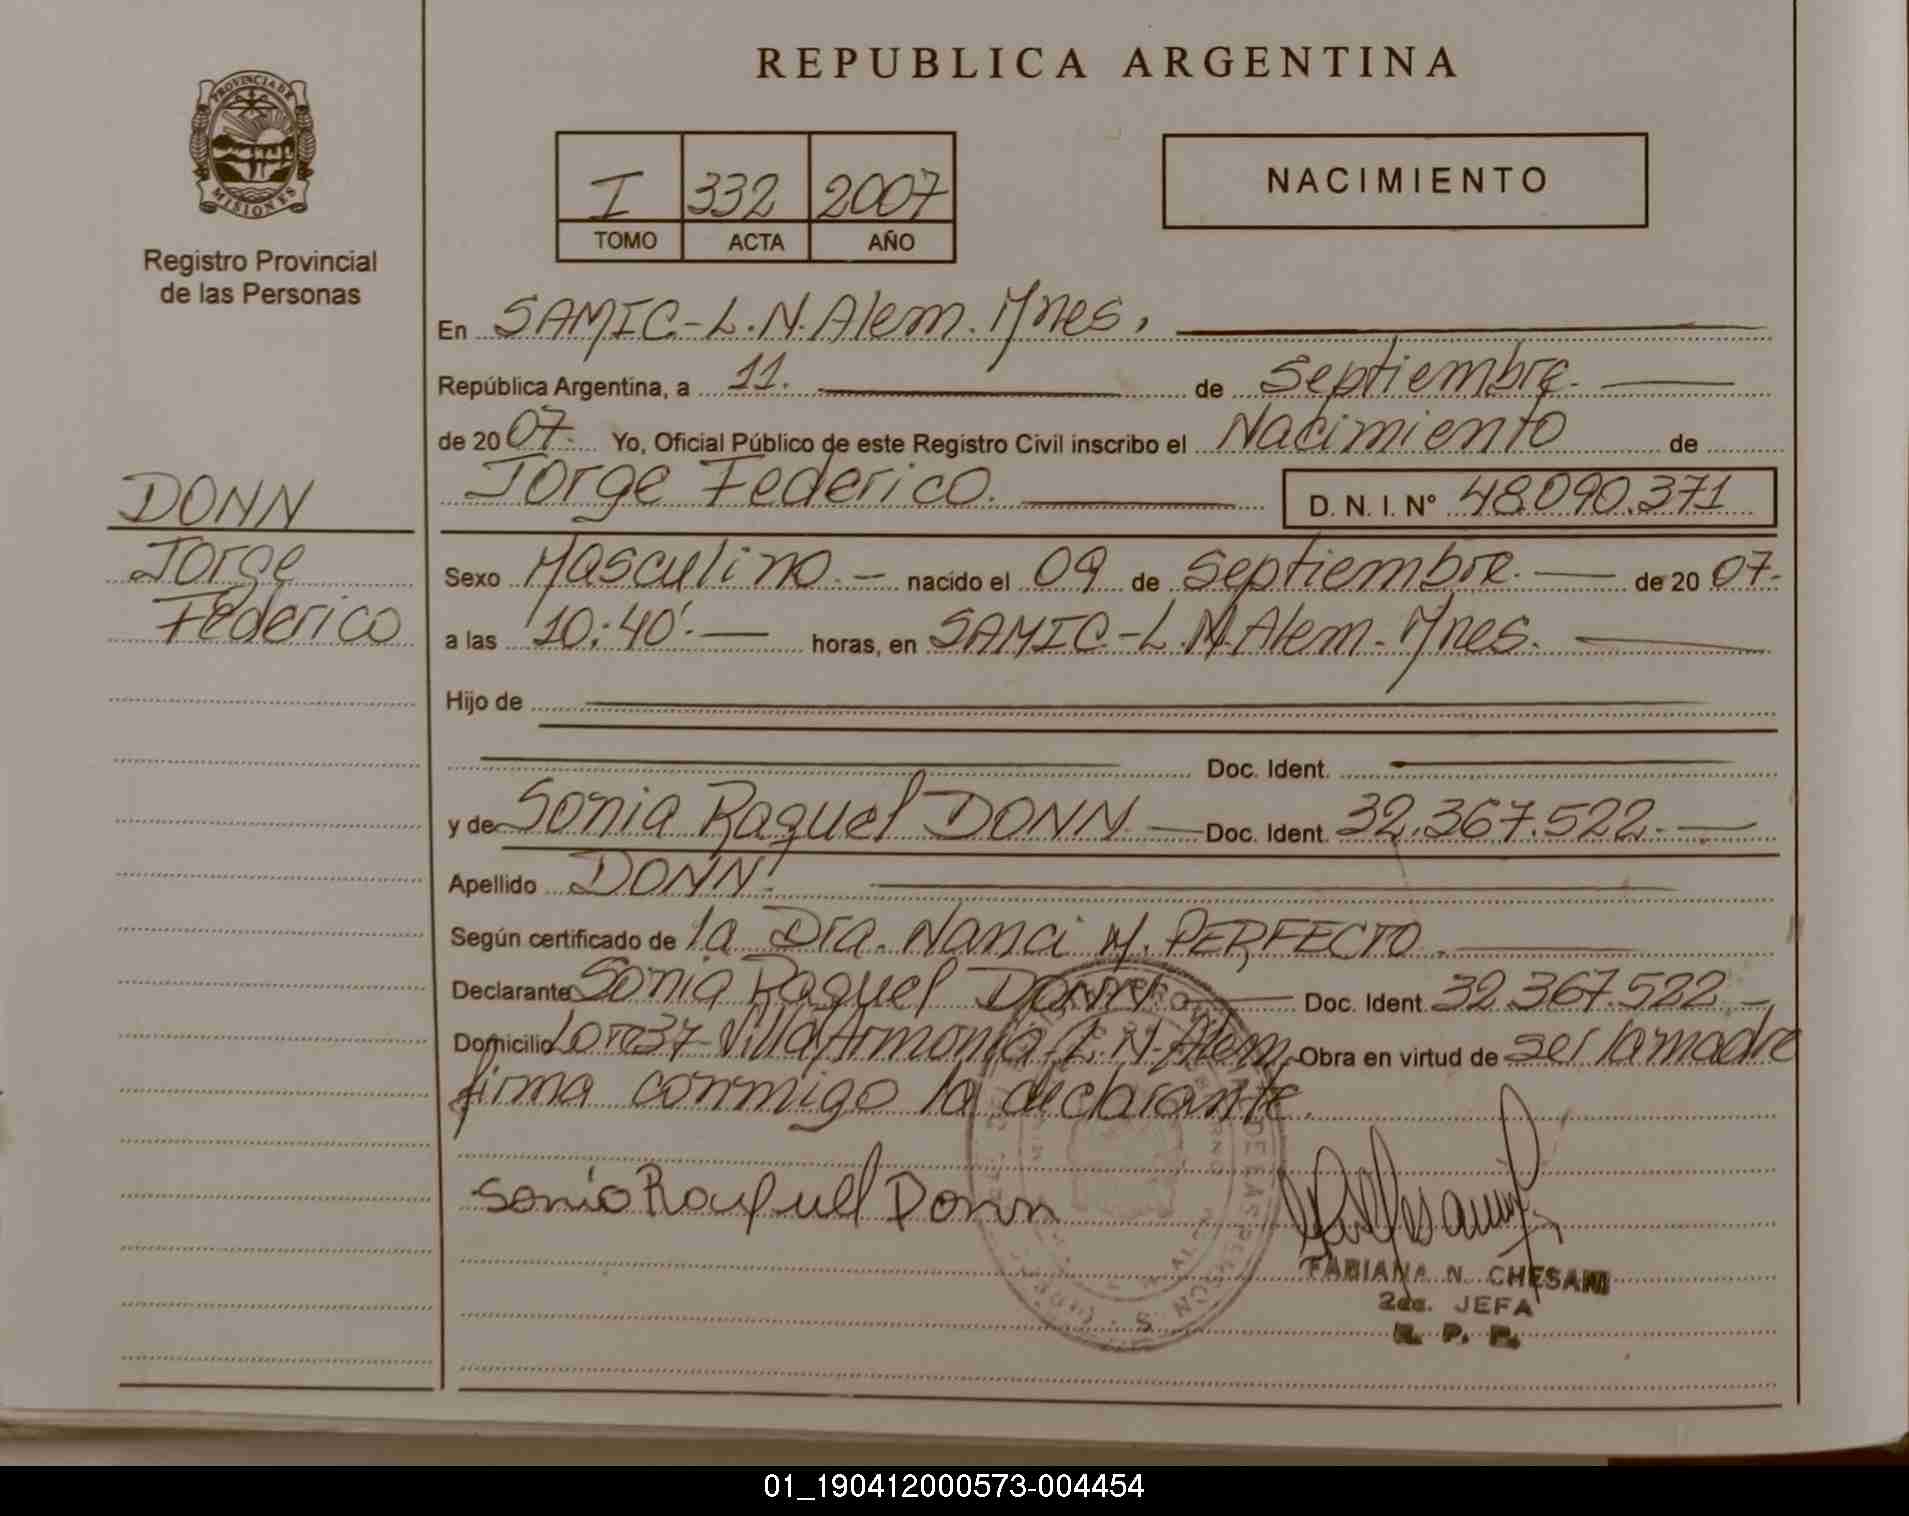 REPUBLICA ARGENTINA
PROVINCIA DE
MISIONES
Registro Provincial
de las Personas
I 332 2007
TOMO ACTA AÑO
NACIMIENTO
En SAMIC-L.N.Alem. Mnes,
República Argentina, a 11. de Septiembre.
de 2007. Yo, Oficial Público de este Registro Civil inscribo el Nacimiento de
Jorge Federico. D. N. I. Nº 48.090.371
DONN
Jorge
Federico
Sexo Masculino. nacido el 09 de Septiembre. de 2007.
a las 10:40'. horas, en SAMIC-L.N.Alem. Mnes.
Hijo de
Doc. Ident.
y de Sonia Raquel DONN Doc. Ident. 32.367.522.
Apellido DONN.
Según certificado de la Dra. Nanci M. PERFECTO.
Declarante Sonia Raquel DONN Doc. Ident. 32.367.522
Domicilio Lote 37 Villa Armonía L.N.Alem. Obra en virtud de ser la madre
firma conmigo la declarante.
Sonia Raquel Donn
FABIANA N. CHESANI
2da. JEFA
R. P. P.
01_190412000573-004454